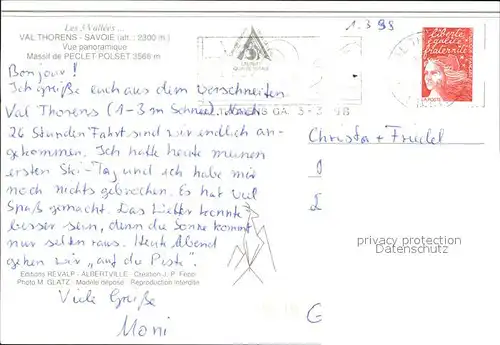 Les 3 Vallées
VAL THORENS - SAVOIE (alt.: 2300 m)
Vue panoramique
Massif de PECLET POLSET 3566 m
1.3.98
liberté
égalité
fraternité
LA POSTE
THORENS GA. 3-3-98
Bonjour!
Ich grüße euch aus dem verschneiten
Val Thorens (1-3 m Schnee). Nach
26 Stunden Fahrt sind wir endlich an-
gekommen. Ich hatte heute meinen
ersten Ski-Tag und ich habe mir
noch nichts gebrochen. Es hat viel
Spaß gemacht. Das Wetter könnte
besser sein, denn die Sonne kommt
nur selten raus. Heute Abend
gehen wir "auf die Piste".
Christa + Friedel
privacy protection
Datenschutz
Editions REVALP - ALBERTVILLE Création J. P. Frieri
Photo M. GLATZ Modèle déposé Reproduction interdite
Viele Grüße
Moni
G